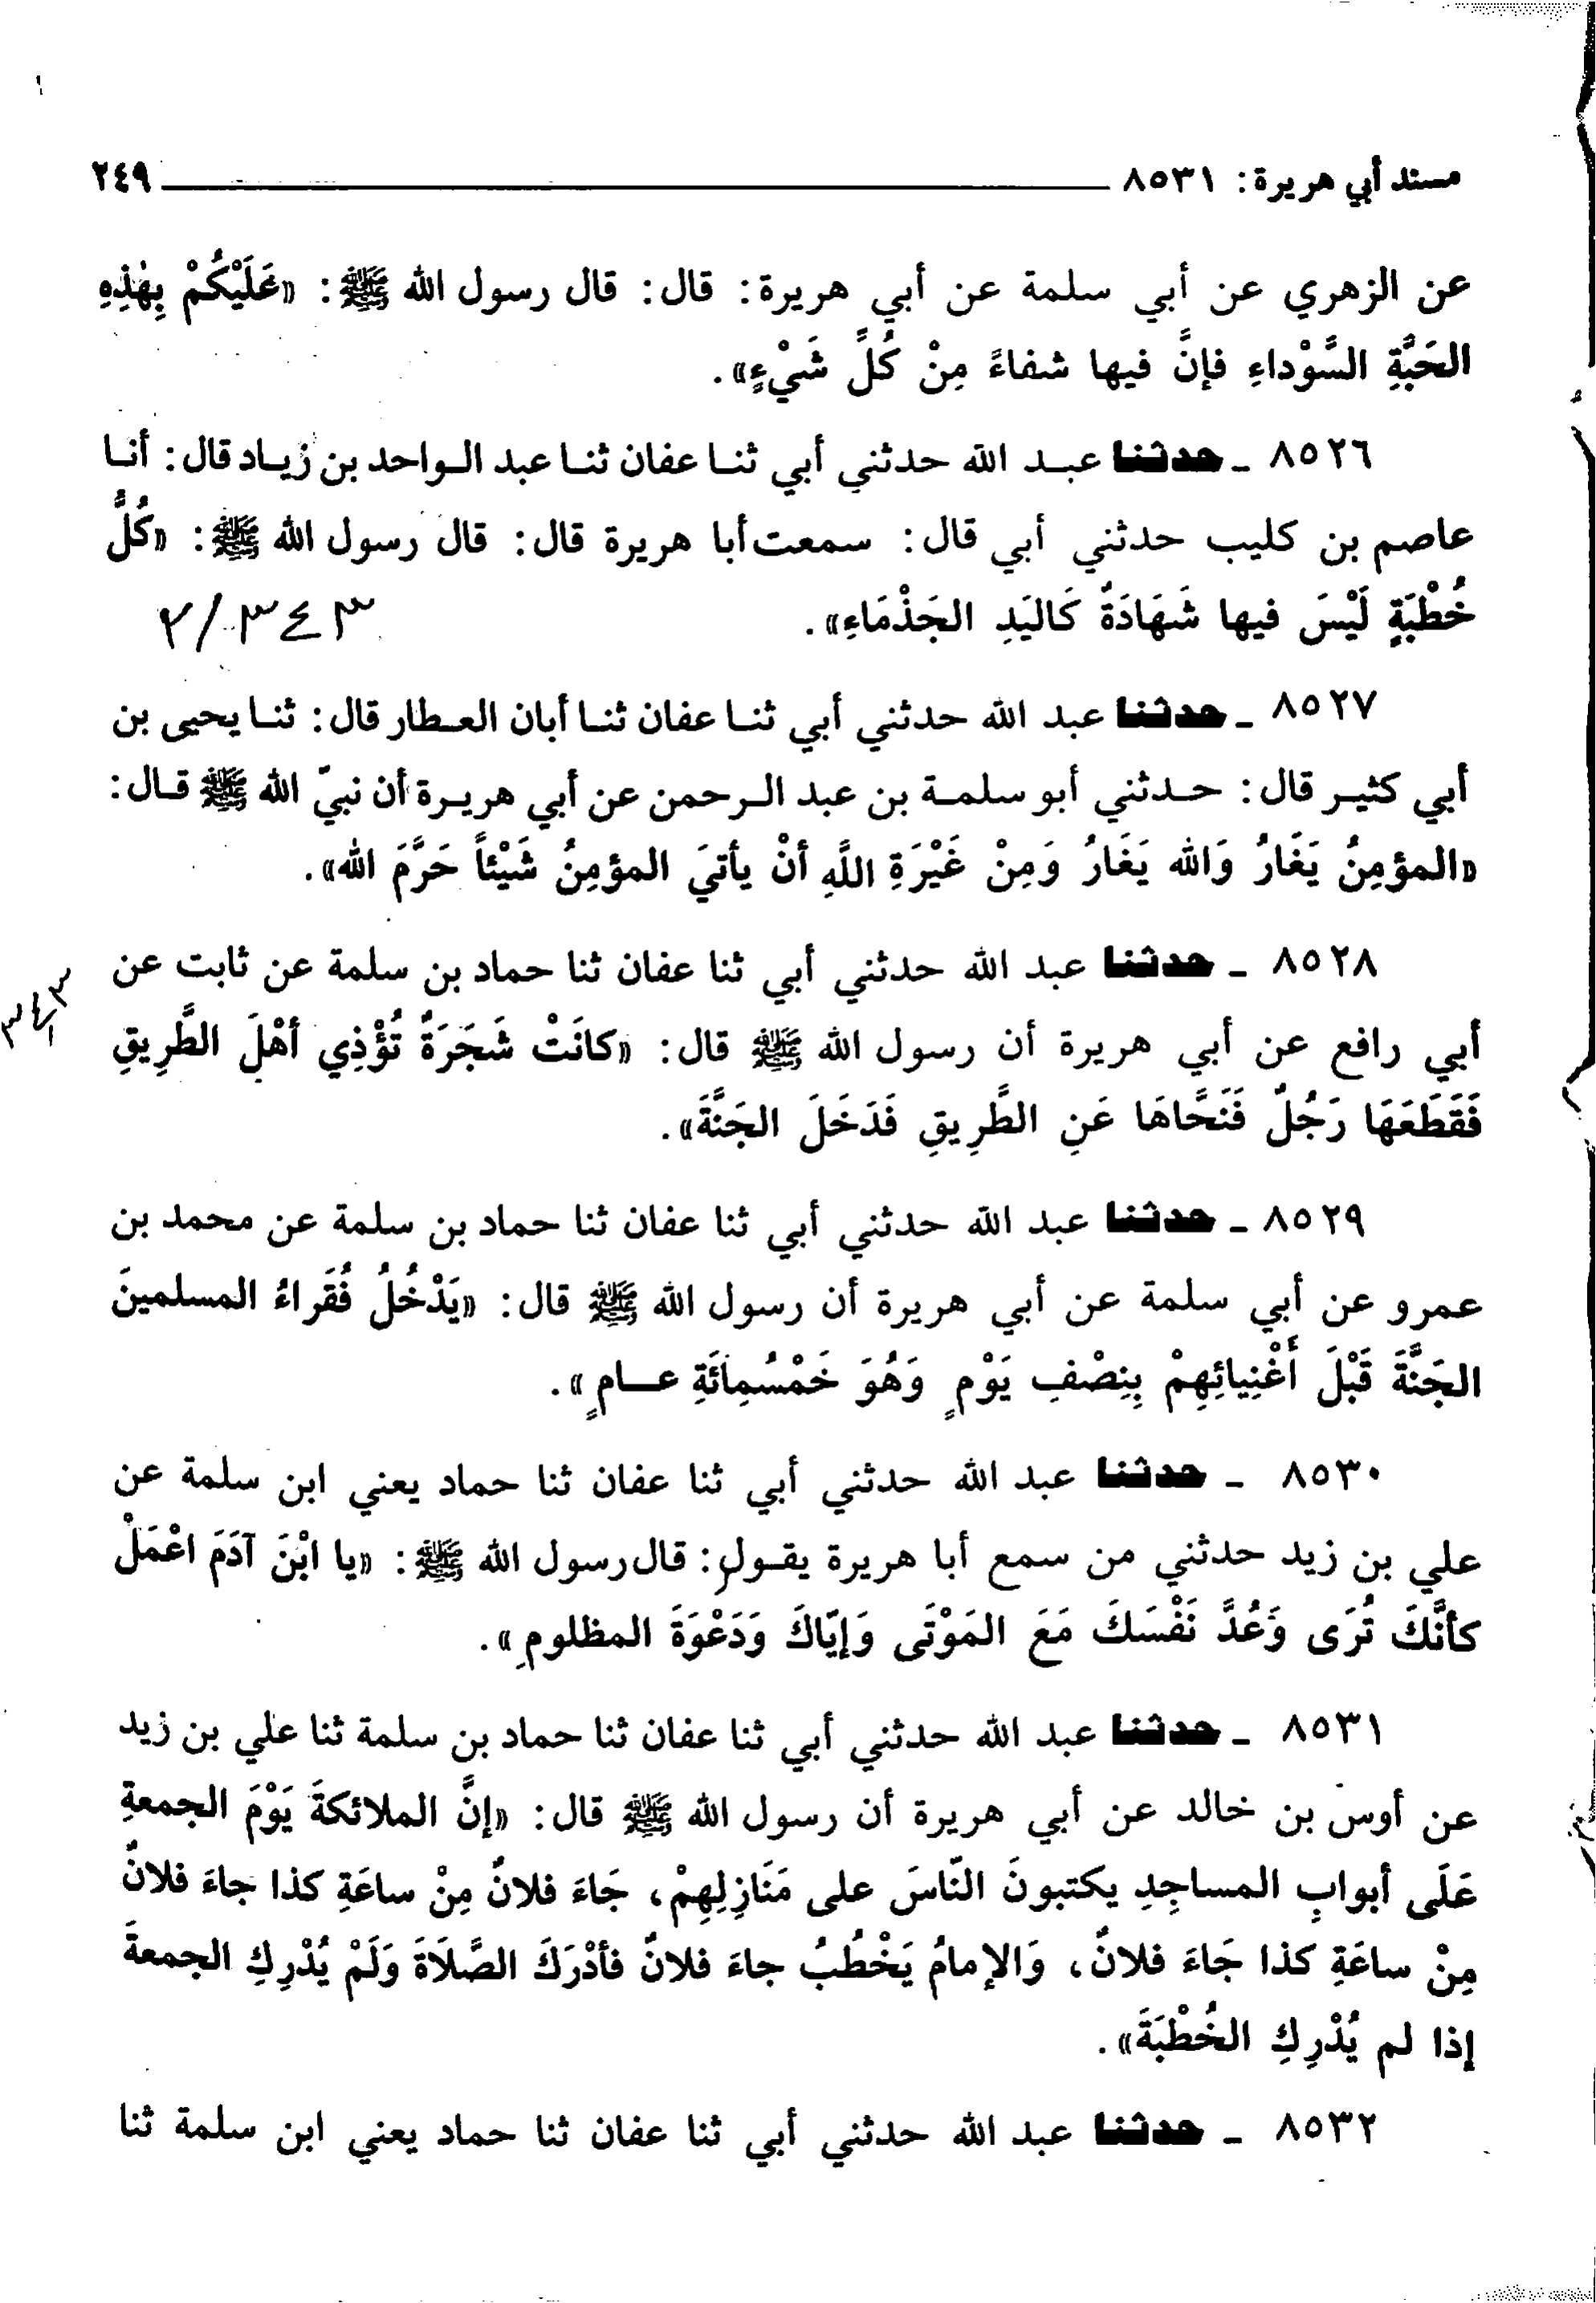 مسند أبي هريرة: ٨٥٣١ ٢٤٩
عن الزهري عن أبي سلمة عن أبي هريرة: قال: قال رسول الله ﷺ: «عَلَيْكُمْ بِهٰذِهِ
الحَبَّةِ السَّوْداءِ فإنَّ فيها شفاءً مِنْ كُلِّ شَيْءٍ».
٨٥٢٦ ـ حدثنا عبد الله حدثني أبي ثنا عفان ثنا عبد الواحد بن زياد قال: أنا
عاصم بن كليب حدثني أبي قال: سمعت أبا هريرة قال: قال رسول الله ﷺ: «كُلُّ
خُطْبَةٍ لَيْسَ فيها شَهَادَةٌ كَاليَدِ الجَذْمَاءِ».
٢/٣٤٣
٨٥٢٧ ـ حدثنا عبد الله حدثني أبي ثنا عفان ثنا أبان العطار قال: ثنا يحيى بن
أبي كثير قال: حدثني أبو سلمة بن عبد الرحمن عن أبي هريرة أن نبيّ الله ﷺ قال:
«المؤمِنُ يَغَارُ وَالله يَغَارُ وَمِنْ غَيْرَةِ اللَّهِ أنْ يأتيَ المؤمِنُ شَيْئاً حَرَّمَ الله».
٨٥٢٨ ـ حدثنا عبد الله حدثني أبي ثنا عفان ثنا حماد بن سلمة عن ثابت عن
أبي رافع عن أبي هريرة أن رسول الله ﷺ قال: «كانَتْ شَجَرَةٌ تُؤْذِي أهْلَ الطَّرِيقِ
فَقَطَعَهَا رَجُلٌ فَنَحَّاهَا عَنِ الطَّرِيقِ فَدَخَلَ الجَنَّةَ».
٨٥٢٩ ـ حدثنا عبد الله حدثني أبي ثنا عفان ثنا حماد بن سلمة عن محمد بن
عمرو عن أبي سلمة عن أبي هريرة أن رسول الله ﷺ قال: «يَدْخُلُ فُقَراءُ المسلمينَ
الجَنَّةَ قَبْلَ أَغْنِيائِهِمْ بِنِصْفِ يَوْمٍ وَهُوَ خَمْسُمِائَةِ عامٍ».
٨٥٣٠ ـ حدثنا عبد الله حدثني أبي ثنا عفان ثنا حماد يعني ابن سلمة عن
علي بن زيد حدثني من سمع أبا هريرة يقول: قال رسول الله ﷺ: «يا ابْنَ آدَمَ اعْمَلْ
كأنَّكَ تُرَى وَعُدَّ نَفْسَكَ مَعَ المَوْتَى وَإيّاكَ وَدَعْوَةَ المظلومِ».
٨٥٣١ ـ حدثنا عبد الله حدثني أبي ثنا عفان ثنا حماد بن سلمة ثنا علي بن زيد
عن أوس بن خالد عن أبي هريرة أن رسول الله ﷺ قال: «إنَّ الملائكةَ يَوْمَ الجمعةِ
عَلَى أبوابِ المساجِدِ يكتبونَ النّاسَ على مَنَازِلِهِمْ، جَاءَ فلانٌ مِنْ ساعَةِ كذا جاءَ فلانٌ
مِنْ ساعَةِ كذا جَاءَ فلانٌ، وَالإمامُ يَخْطُبُ جاءَ فلانٌ فأدْرَكَ الصَّلَاةَ وَلَمْ يُدْرِكِ الجمعةَ
إذا لم يُدْرِكِ الخُطْبَةَ».
٨٥٣٢ ـ حدثنا عبد الله حدثني أبي ثنا عفان ثنا حماد يعني ابن سلمة ثنا